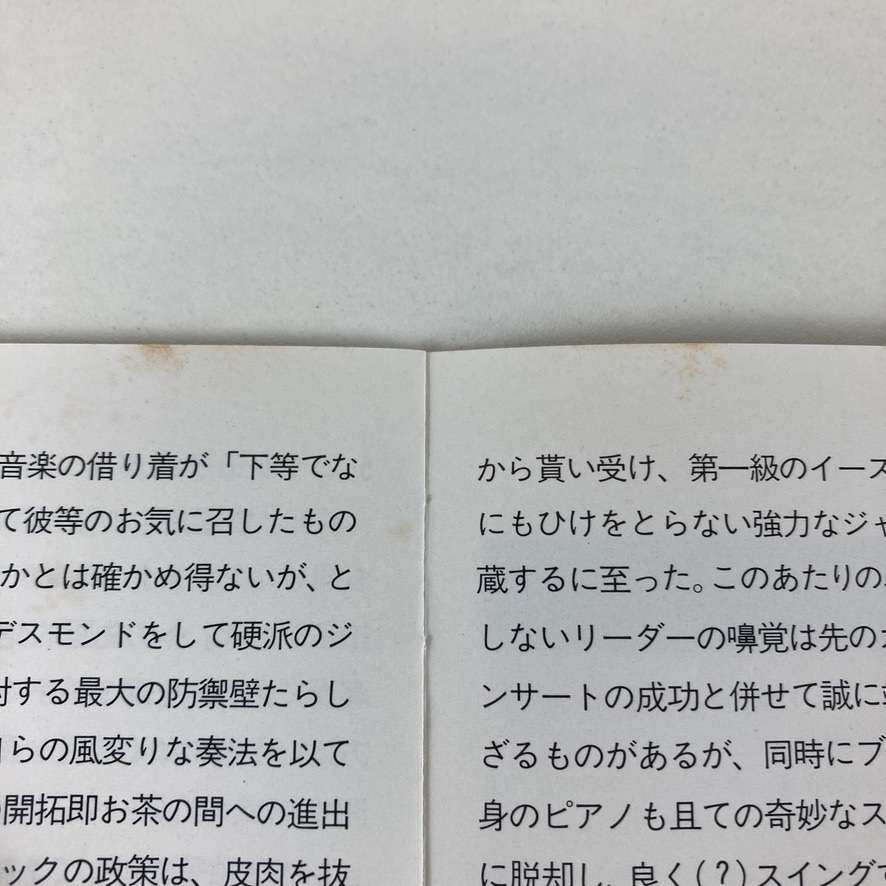 音楽の借り着が「下等でな
て彼等のお気に召したもの
かとは確かめ得ないが、と
デスモンドをして硬派のジ
対する最大の防禦壁たらし
らの風変りな奏法を以て
の開拓即お茶の間への進出
ックの政策は、皮肉を抜
から貰い受け、第一級のイース
にもひけをとらない強力なジャ
蔵するに至った。このあたりの
しないリーダーの嗅覚は先のカ
ンサートの成功と併せて誠に
ざるものがあるが、同時にブ
身のピアノも且ての奇妙なス
に脱却し、良く(?)スイングす